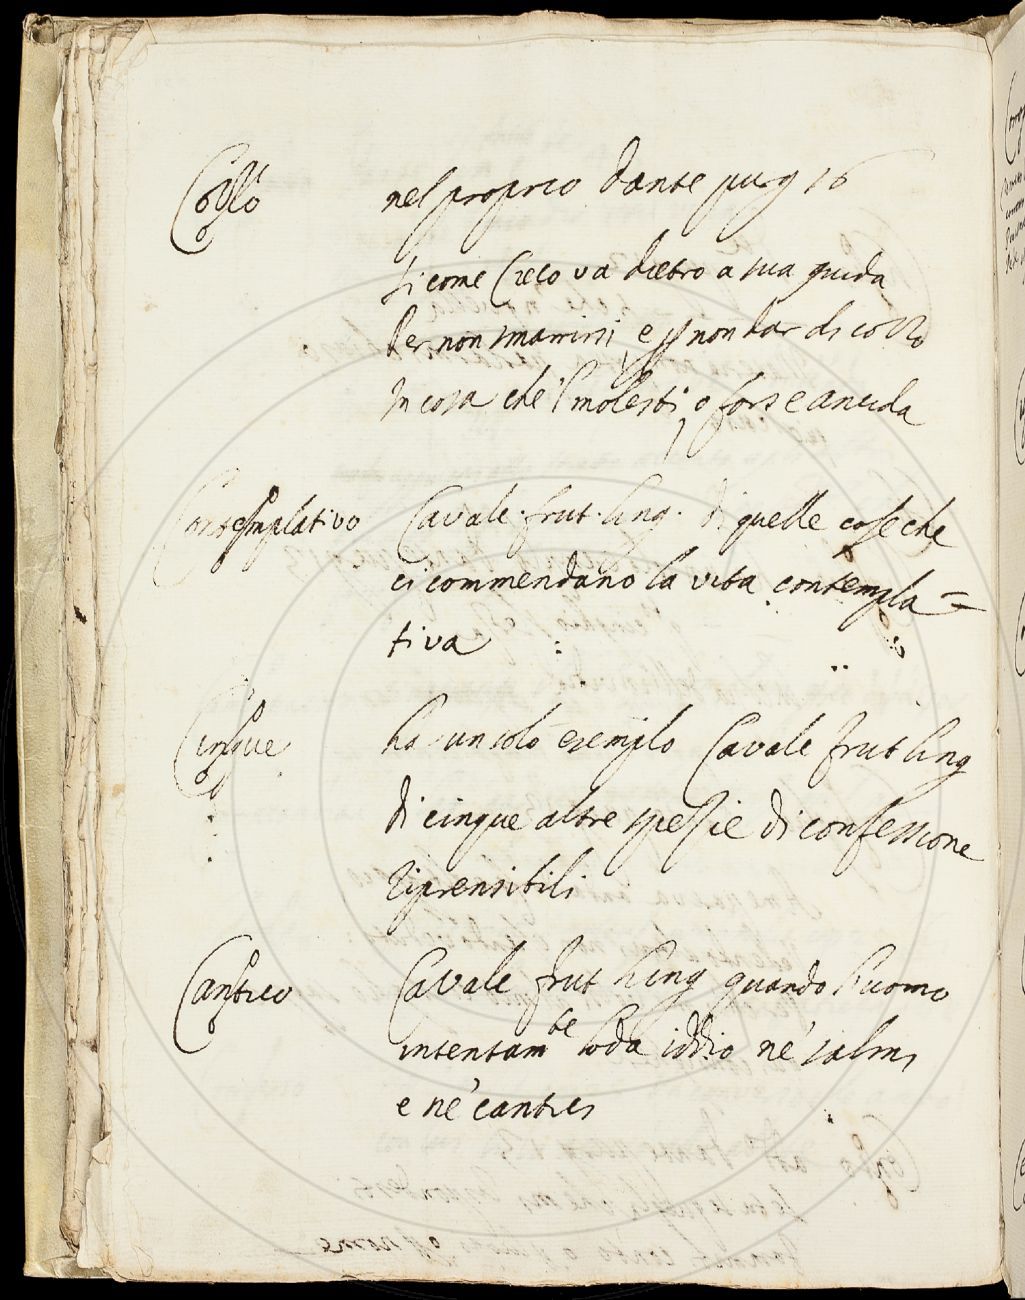 Collo nel proprio Dante purg 16
Si come Cieco va dietro a sua guida
Per non smarrirsi, e p non dar di collo
In cosa che'l molesti, o forse ancida
Contemplativo Cavalc. frut. ling. di quelle cose che
ci commendano la vita contempla=
tiva
Cinque ha un solo esemplo Cavalc frut ling
di cinque altre spezie di confessione
riprensibili
Cantico Cavalc frut ling quando l'uomo
intentam te loda iddio ne' salmi
e ne' cantici